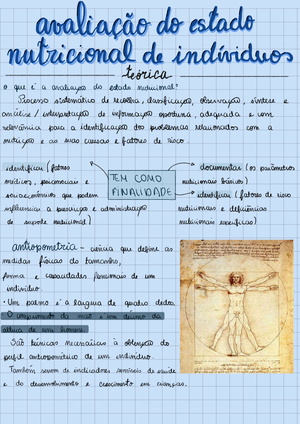 avaliação do estado
nutricional de indivíduos
teórica
O que é a avaliação do estado nutricional?
Processo sistemático de recolha, classificação, observação, síntese e
análise / interpretação de informação oportuna, adequada e com
relevância para a identificação dos problemas relacionados com a
nutrição e as suas causas e fatores de risco.
identificar (fatores
médicos, psicossociais e
socioeconómicos que podem
influenciar a prescrição e administração
de suporte nutricional)
TEM COMO
FINALIDADE
documentar (os parâmetros
nutricionais básicos)
identificar (fatores de risco
nutricionais e deficiências
nutricionais específicas)
antropometria - ciência que define as
medidas físicas do tamanho,
forma e capacidades funcionais de um
indivíduo.
• Um palmo é a largura de quatro dedos
O comprimento da mão é um décimo da
altura de um homem
São técnicas necessárias à obtenção do
perfil antropométrico de um indivíduo.
Também servem de indicadores sensíveis de saúde
e do desenvolvimento e crescimento em crianças.